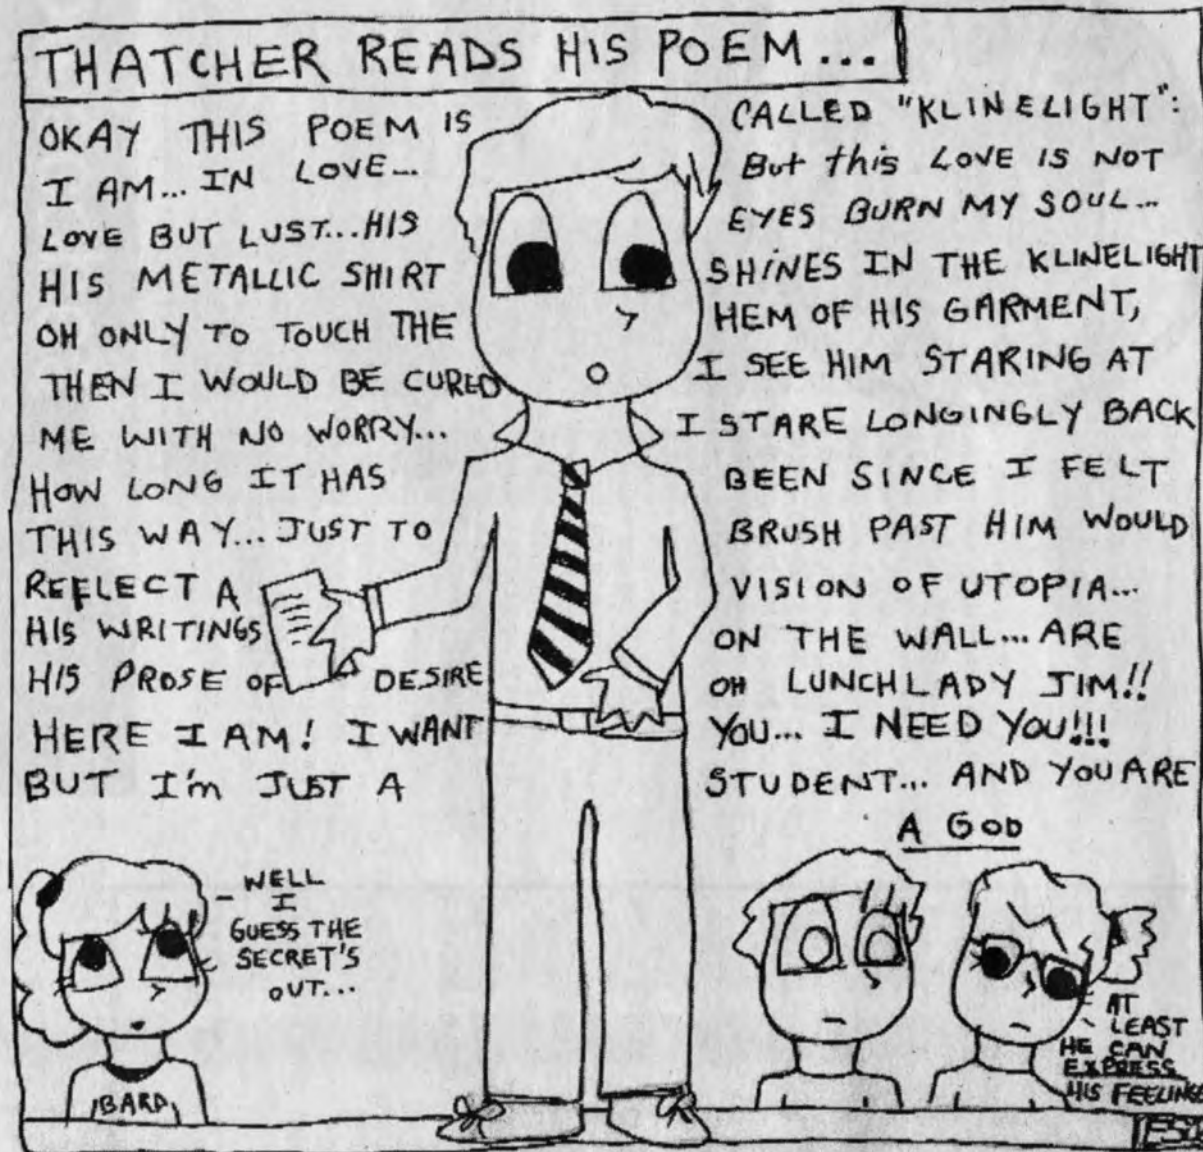 THATCHER READS HIS POEM...
OKAY THIS POEM IS CALLED "KLINELIGHT":
I AM... IN LOVE... But this LOVE IS NOT
LOVE BUT LUST... HIS EYES BURN MY SOUL...
HIS METALLIC SHIRT SHINES IN THE KLINELIGHT
OH ONLY TO TOUCH THE HEM OF HIS GARMENT,
THEN I WOULD BE CURED I SEE HIM STARING AT
ME WITH NO WORRY... I STARE LONGINGLY BACK
HOW LONG IT HAS BEEN SINCE I FELT
THIS WAY... JUST TO BRUSH PAST HIM WOULD
REFLECT A VISION OF UTOPIA...
HIS WRITINGS ON THE WALL... ARE
HIS PROSE OF DESIRE OH LUNCHLADY JIM!!
HERE I AM! I WANT YOU... I NEED YOU!!!
BUT I'm JUST A STUDENT... AND YOU ARE
A GOD
WELL
I
GUESS THE
SECRET'S
OUT...
BARD
AT
LEAST
HE CAN
EXPRESS
HIS FEELINGS